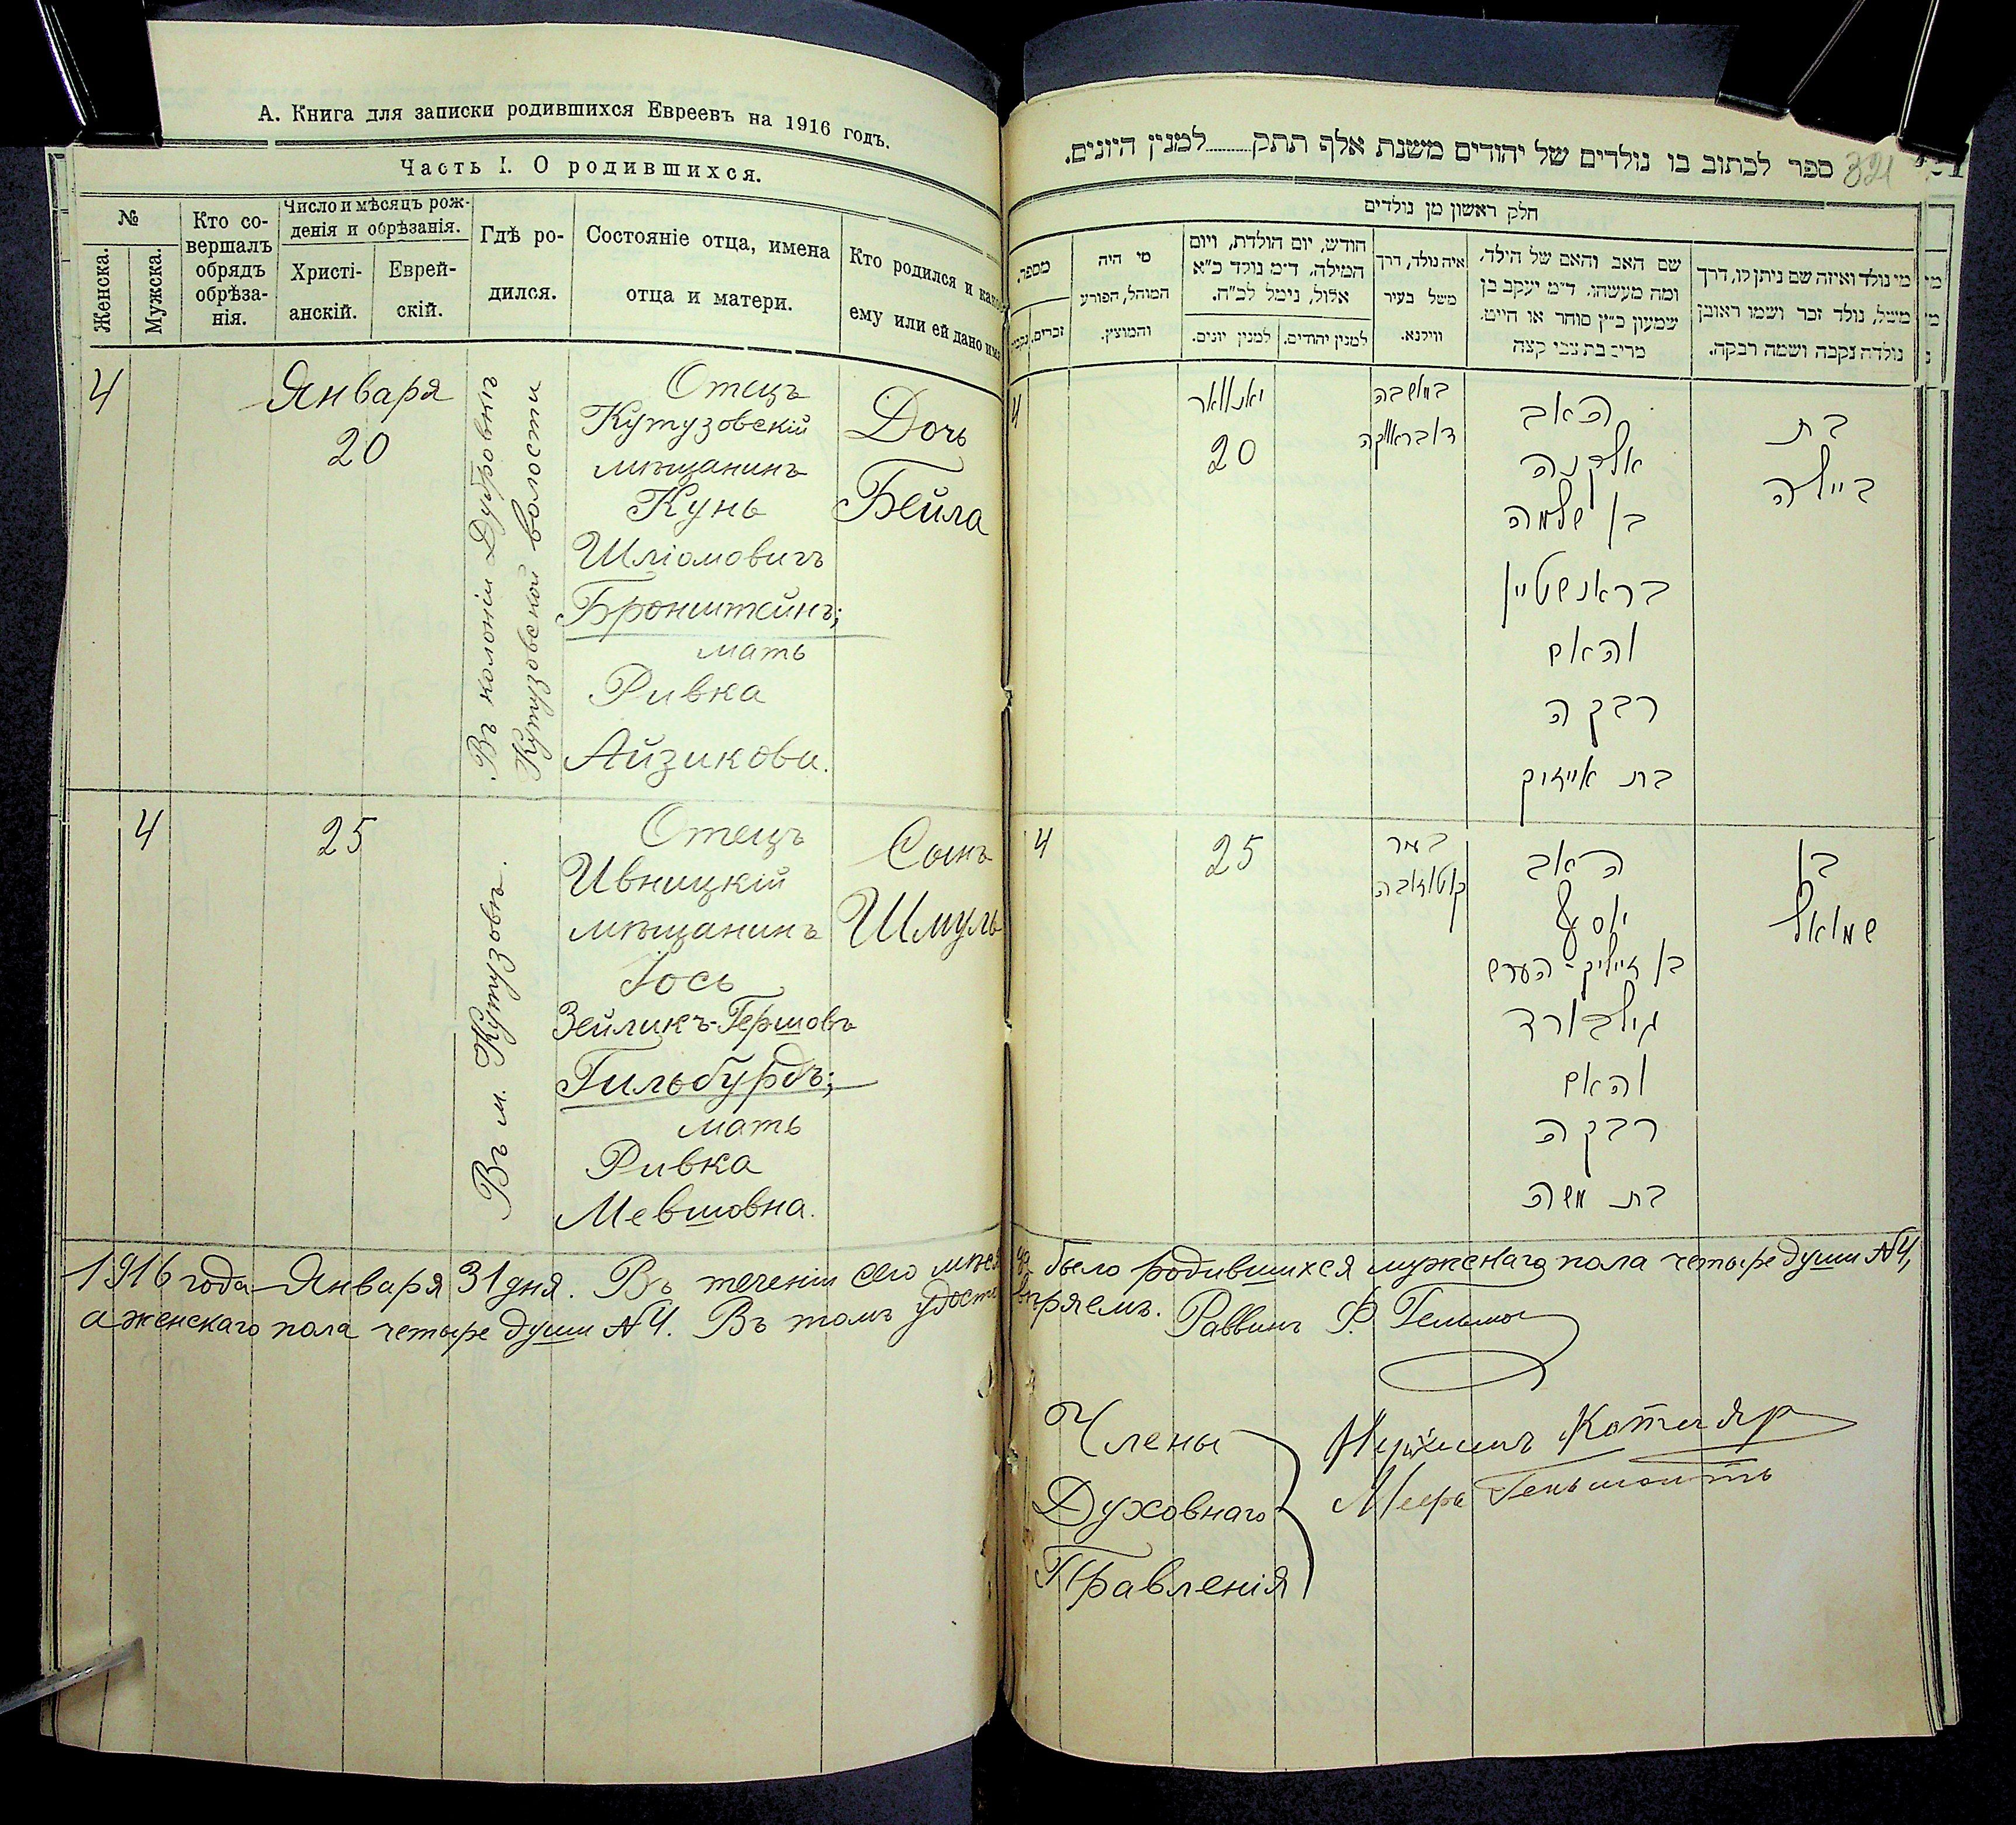 А. Книга для записки родившихся Евреевъ на 1916 годъ.
Часть I. О родившихся.
№
Женска.
Мужска.
Кто со-
вершалъ
обрядъ
обрѣза-
нія.
Число и мѣсяцъ рож-
денія и обрѣзанія.
Христі-
анскій.
Еврей-
скій.
Гдѣ ро-
дился.
Состояніе отца, имена
отца и матери.
Кто родился и како
ему или ей дано им
4
Января
20
Въ колоніи Дубровкѣ
Кутузовской волости
Отецъ
Кутузовскій
мѣщанинъ
Кунь
Шліомовичъ
Бронштейнъ;
мать
Ривка
Айзикова.
Дочь
Бейла
4
25
Въ м. Кутузовѣ.
Отецъ
Ивницкій
мѣщанинъ
Іось
Зейликъ-Гершовъ
Гильбурдъ;
мать
Ривка
Мевшовна.
Сынъ
Шмуль
ספר לכתוב בו נולדים של יהודים משנת אלף תתק למנין היונים.
321
חלק ראשון מן נולדים
מספר.
זכרים.
מי היה
המוהל, הפורע
והמוצץ.
חודש, יום הולדת, ויום
המילה. ד״מ נולד כ״א
אלול, נימל לכ״ח.
למנין יונים.
למנין יהודים.
איה נולד, דרך
משל בעיר
ווילנא.
שם האב והאם של הילד,
ומה מעשהו. ד״מ יעקב בן
שמעון כ״ץ סוחר או חייט.
מרים בת צבי קצה
מי נולד ואיזה שם ניתן לו, דרך
משל, נולד זכר ושמו ראובן
נולדה נקבה ושמה רבקה.
4
יאנוואר
20
במאשבה
דובראווקה
האב
אלקנה
בן שלמה
בראנשטיין
והאם
רבקה
בת אייזיק
בת
ביילה
4
25
קוטוזובה
האב
יוסף
בן זייליק-הערש
גילבורד
והאם
רבקה
בת משה
בן
שמואל
1916 года Января 31 дня. Въ теченіи сего мѣсяца было родившихся мужскаго пола четыре души №4,
а женскаго пола четыре души №4. Въ томъ удостовѣряемъ. Раввинъ
Члены
Духовнаго
Правленія
Котляр
Мееръ